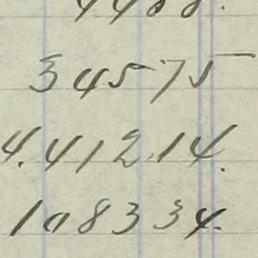 4488.
34575
4.412.14.
108334.